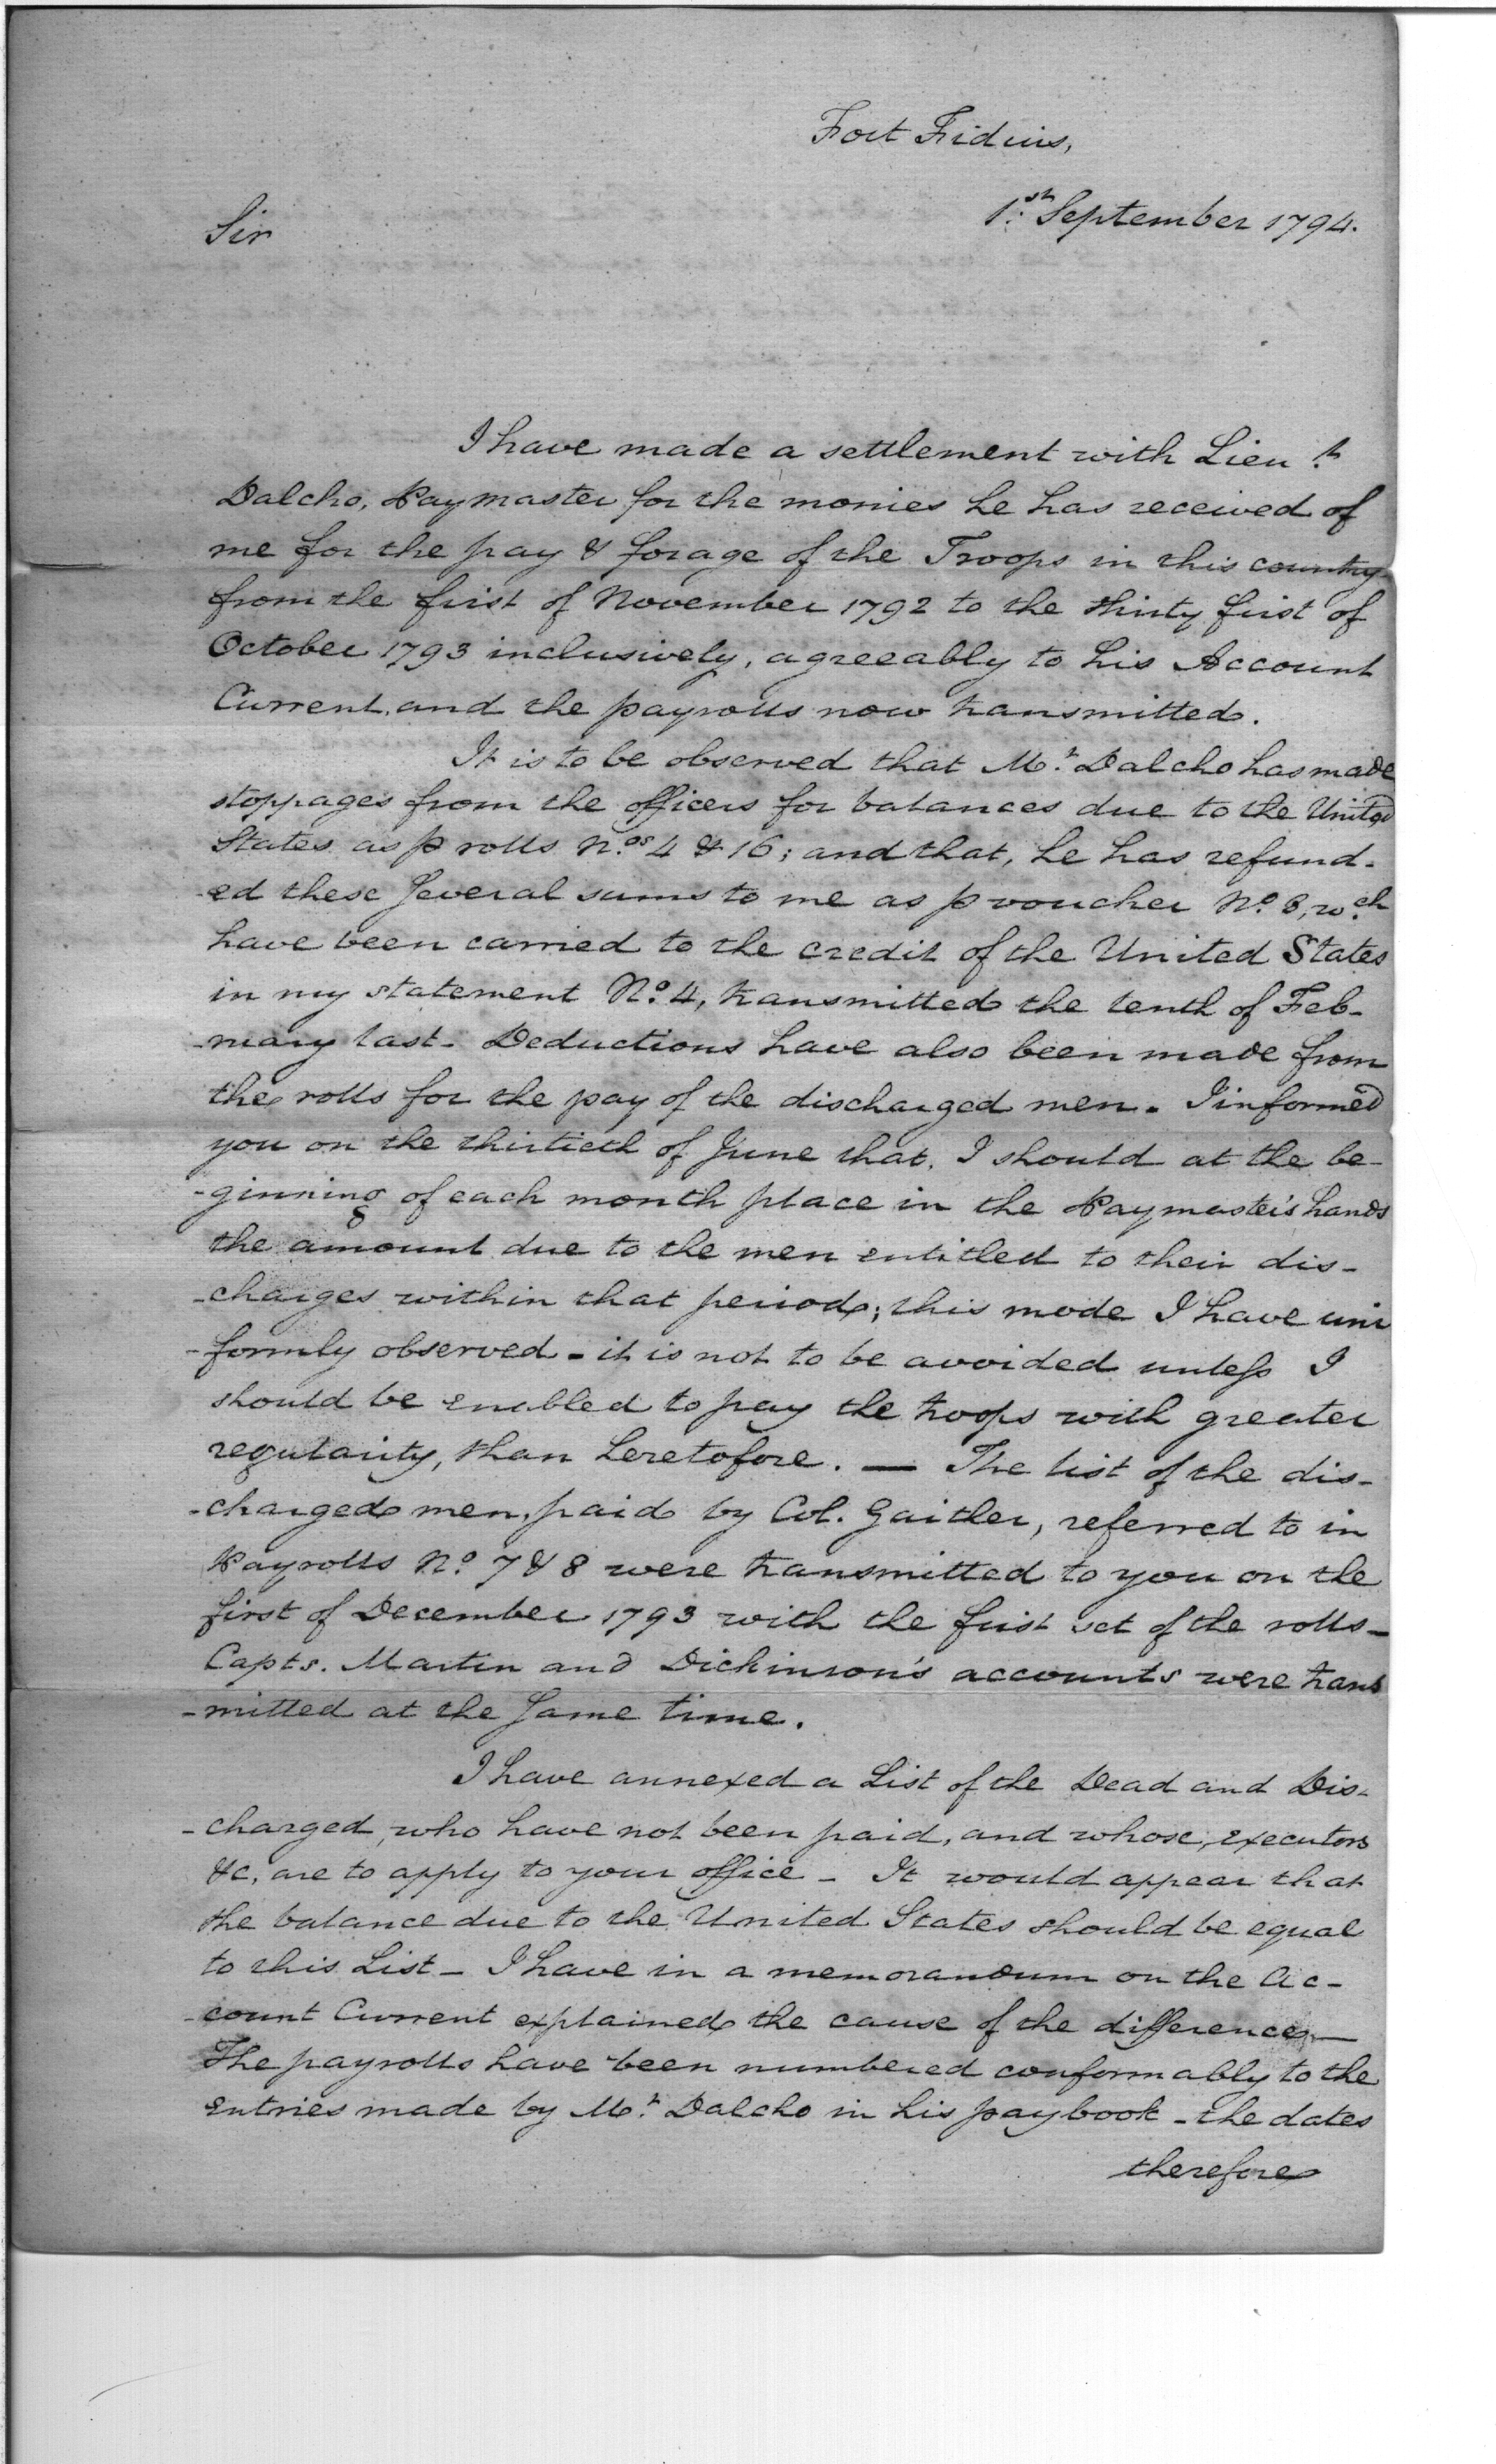 Fort Fidius,
1st September 1794.
Sir
I have made a settlement with Lieut
Dalcho, Paymaster for the monies he has received of
me for the pay & forage of the Troops in this country
from the first of November 1792 to the thirty first of
October 1793 inclusively, agreeably to his Account
Current, and the payrolls now transmitted.
It is to be observed that Mr. Dalcho has made
stoppages from the officers for balances due to the United
States as p rolls Nos. 4 & 16; and that, he has refund-
-ed these several sums to me as p voucher No. 8, wch
have been carried to the credit of the United States
in my statement No. 4, transmitted the tenth of Feb-
-ruary last - Deductions have also been made from
the rolls for the pay of the discharged men - I informed
you on the thirtieth of June that, I should at the be-
-ginning of each month place in the Paymaster's hands
the amount due to the men entitled to their dis-
-charges within that period; this mode I have uni
-formly observed - it is not to be avoided unless I
should be enabled to pay the troops with greater
regularity, than heretofore. — The list of the dis-
-charged men, paid by Col. Gaither, referred to in
Payrolls No. 7 & 8 were transmitted to you on the
first of December 1793 with the first set of the rolls -
Capts. Martin and Dickinson's accounts were trans
-mitted at the same time.
I have annexed a List of the Dead and Dis-
-charged, who have not been paid, and whose, executors
&c, are to apply to your office - It would appear that
the balance due to the United States should be equal
to this List - I have in a memorandum on the Ac-
-count Current explained the cause of the difference —
The payrolls have been numbered conformably to the
entries made by Mr. Dalcho in his pay book - the dates
therefore